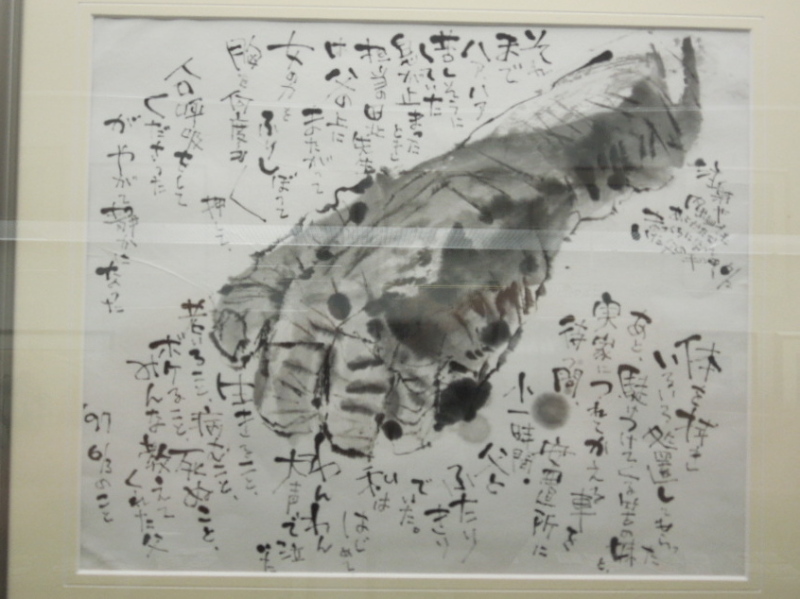 それ
まで
ハアハア
苦しそうに
していた
息が止まった
とき
担当の
先生
は父の上に
またがって
女の力を
ふりしぼって
胸を何度も
押して
人口呼吸をして
くださった
がやがて静かになった
体を拭き
いろいろ処置してもらった
あと、駆けつけて
実家につれてかえる車を
待つ間、
安置所に
小一時間、
父と
ふたりきり
でいた。
私ははじめて
わんわん
大声で泣いた
生きること、
老いること、病むこと、
ボケること、死ぬこと、
みんな教えて
くれた父
'97 6/13のこと